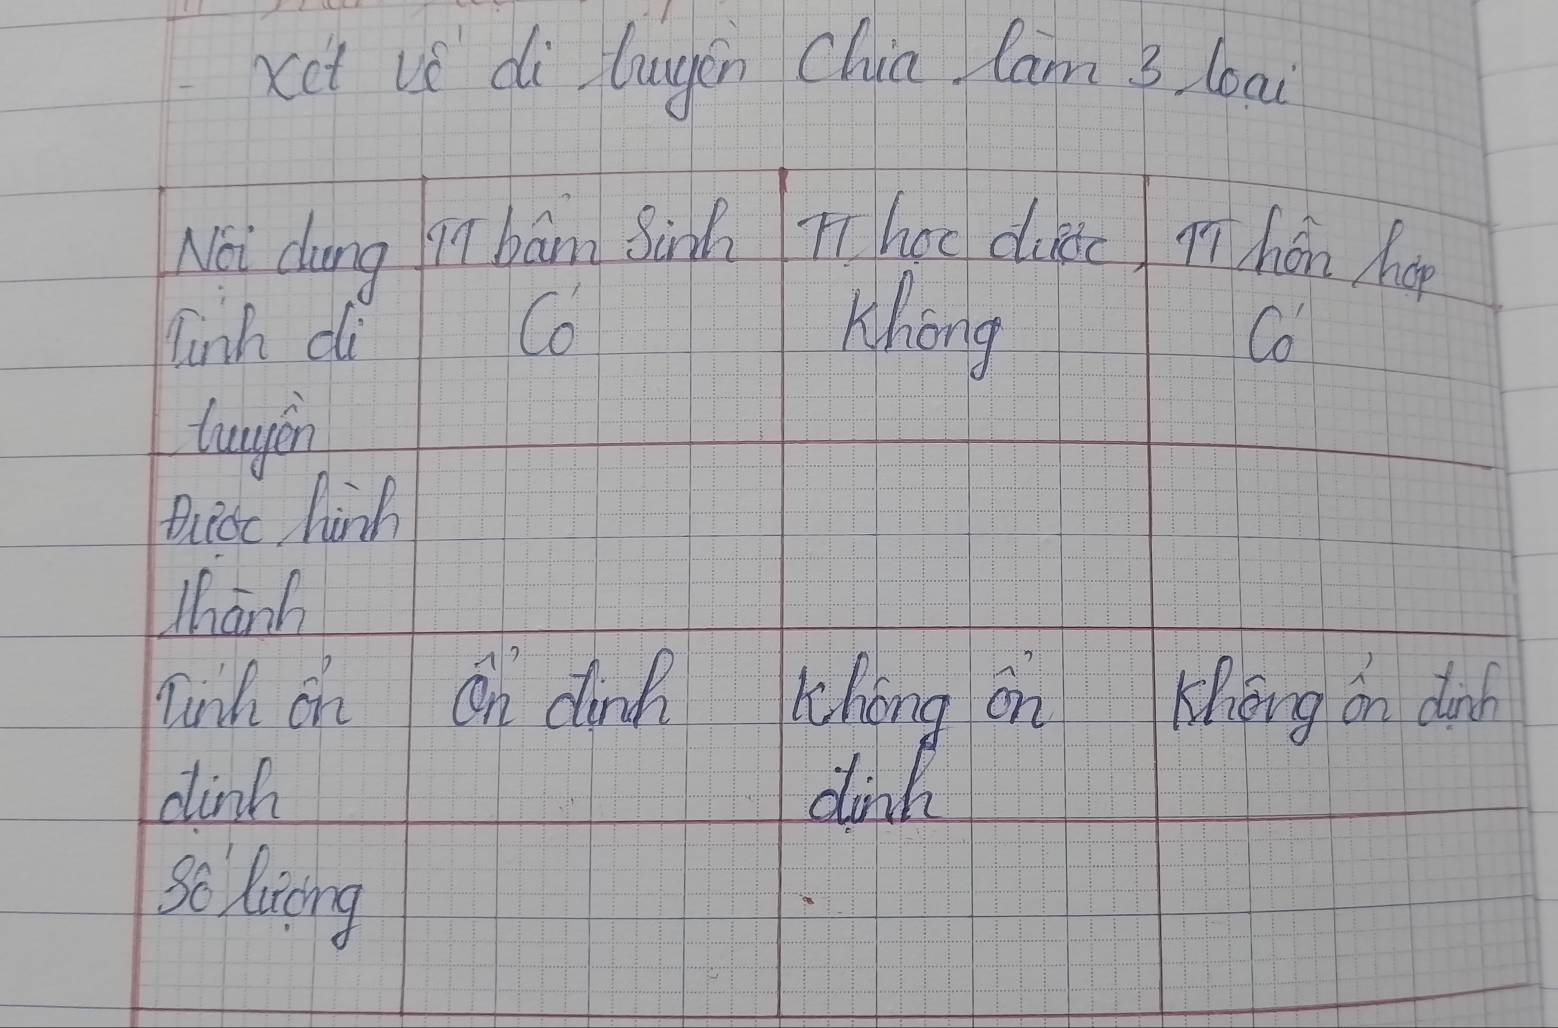 - Xét về di truyền chia làm 3 loại
Nội dung TT bẩm sinh TT học được TT hỗn hợp
Tính di Có Không Có
truyền
Được hình
thành
Tính ổn Ổn định Không ổn Không ổn định
định định
Số lượng